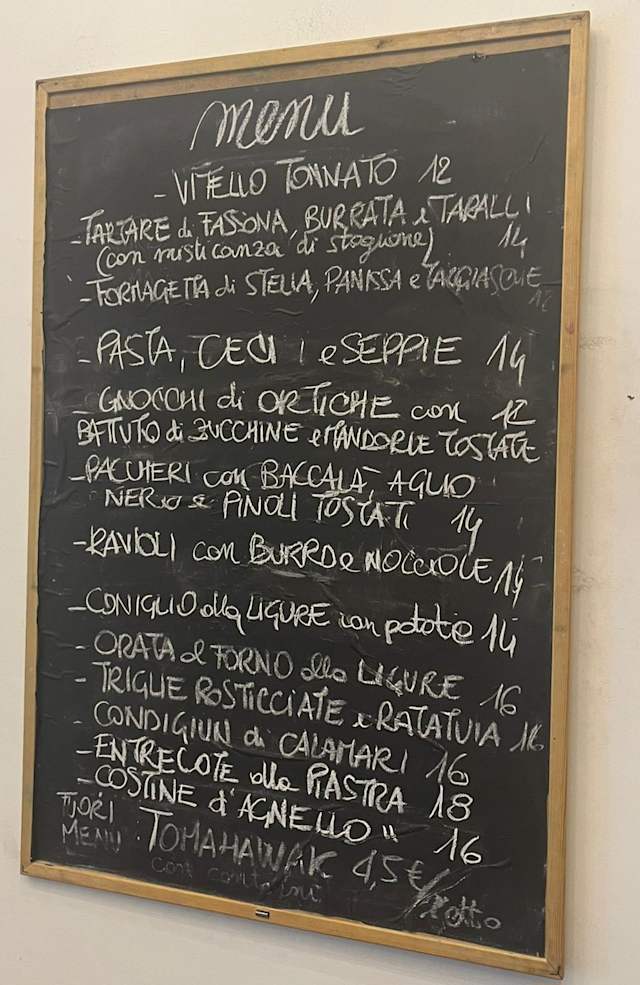 menu
- VITELLO TONNATO 12
- TARTARE di FASSONA, BURRATA e TARALLI
(con misticanza di stagione) 14
- FORMAGETTA di STELLA, PANISSA e TAGGIASCHE
12
- PASTA, CECI e SEPPIE 14
- GNOCCHI di ORTICHE con 12
BATTUTO di ZUCCHINE e MANDORLE TOSTATE
- PACCHERI con BACCALÀ, AGLIO
NERO e PINOLI TOSTATI 14
- RAVIOLI con BURRO e NOCCIOLE 14
- CONIGLIO alla LIGURE con patate 14
- ORATA al FORNO alla LIGURE 16
- TRIGLIE ROSTICCIATE e RATATUIA 16
- CONDIGIUN di CALAMARI 16
- ENTRECOTE alla PIASTRA 18
- COSTINE d'AGNELLO " 16
FUORI
MENU : TOMAHAWK 4,5€/l'etto
con contorni